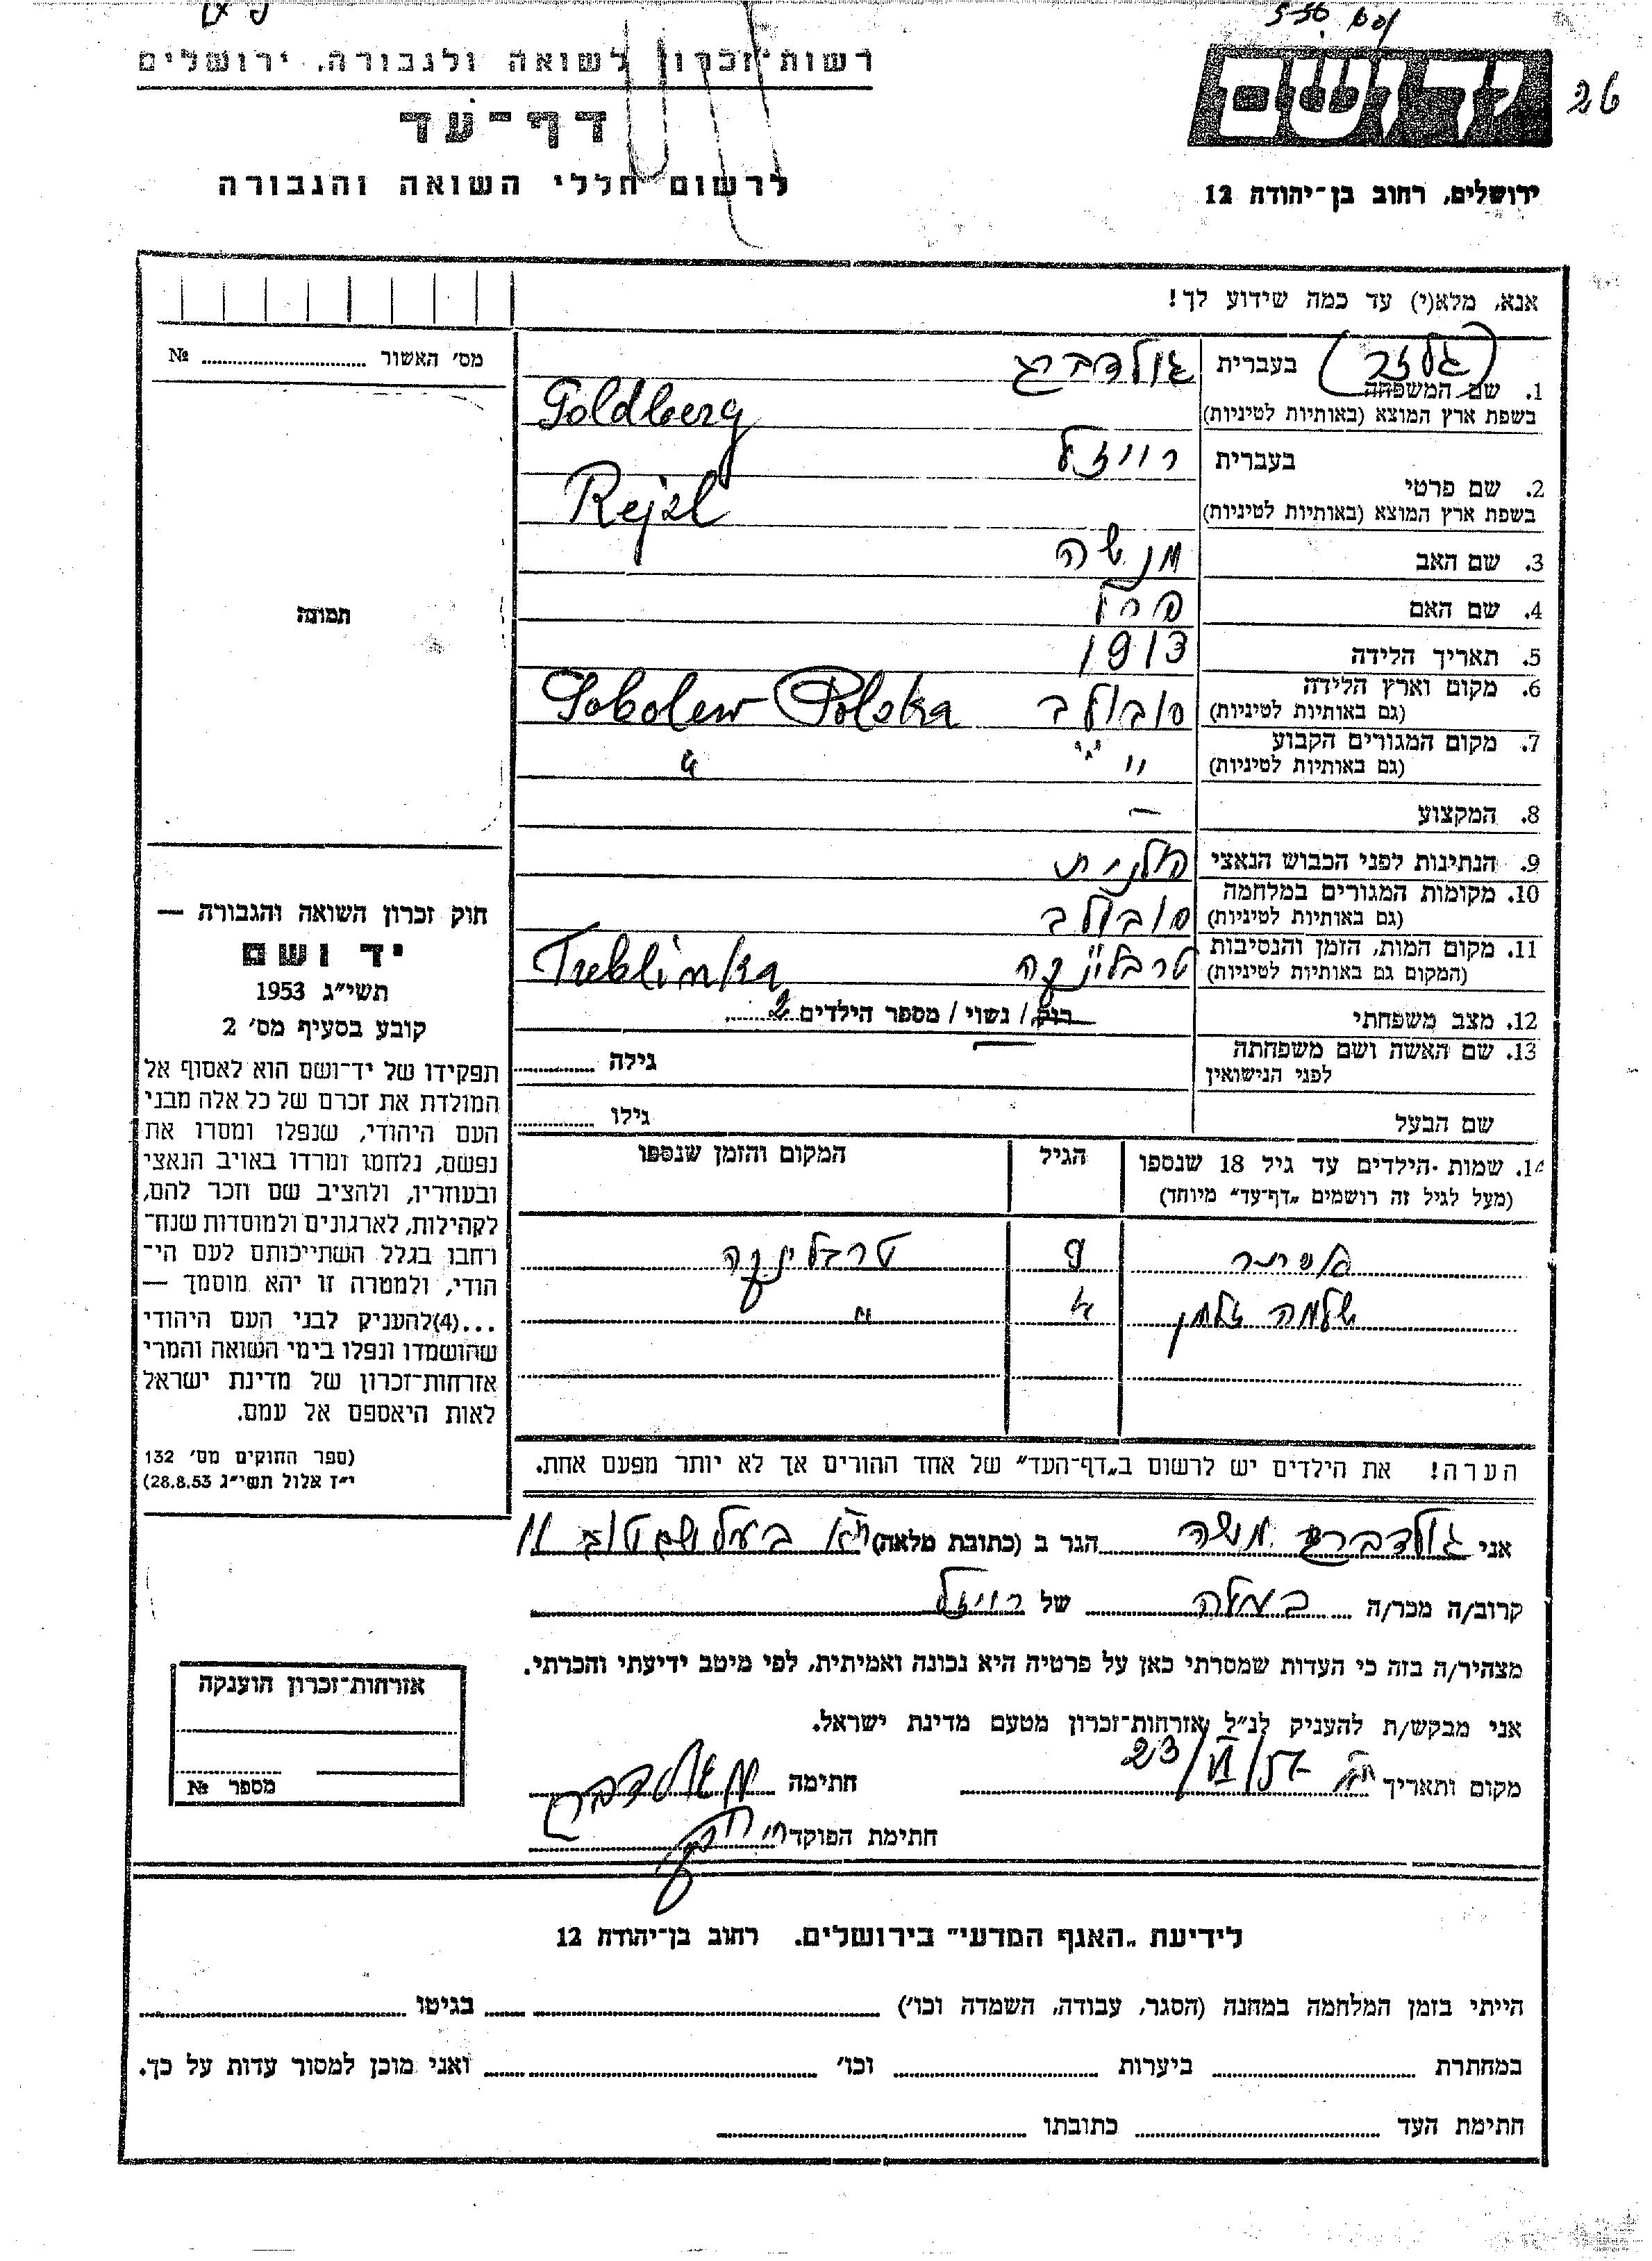 רשות־זכרון לשואה ולגבורה, ירושלים
דף־עד
לרשום חללי השואה והגבורה
יד ושם
26
ירושלים, רחוב בן־יהודה 12
אנא, מלא(י) עד כמה שידוע לך!
מס׳ האשור ........ №
תמונה
1. שם המשפחה בעברית (גלזר) גולדברג
בשפת ארץ המוצא (באותיות לטיניות) Goldberg
2. שם פרטי בעברית רויזל
בשפת ארץ המוצא (באותיות לטיניות) Rejzl
3. שם האב מנשה
4. שם האם פרל
5. תאריך הלידה 1913
6. מקום וארץ הלידה (גם באותיות לטיניות) סובולב Sobolew Polska
7. מקום המגורים הקבוע (גם באותיות לטיניות) " "
8. המקצוע —
9. הנתינות לפני הכבוש הנאצי פולנית
10. מקומות המגורים במלחמה (גם באותיות לטיניות) סובולב
11. מקום המות, הזמן והנסיבות (המקום גם באותיות לטיניות) טרבלינקה Treblinka
12. מצב משפחתי רוק / נשוי / מספר הילדים 2
13. שם האשה ושם משפחתה לפני הנישואין גילה ........
שם הבעל גילו ........
14. שמות הילדים עד גיל 18 שנספו הגיל המקום והזמן שנספו
(מעל לגיל זה רושמים „דף־עד" מיוחד)
אסתר 9 טרבלינקה
שלמה זלמן 4 "
הערה! את הילדים יש לרשום ב„דף־העד" של אחד ההורים אך לא יותר מפעם אחת.
חוק זכרון השואה והגבורה —
יד ושם
תשי״ג 1953
קובע בסעיף מס׳ 2
תפקידו של יד־ושם הוא לאסוף אל
המולדת את זכרם של כל אלה מבני
העם היהודי, שנפלו ומסרו את
נפשם, נלחמו ומרדו באויב הנאצי
ובעוזריו, ולהציב שם וזכר להם,
לקהילות, לארגונים ולמוסדות שנח־
רחבו בגלל השתייכותם לעם הי־
הודי, ולמטרה זו יהא מוסמך —
...(4)להעניק לבני העם היהודי
שהושמדו ונפלו בימי השואה והמרי
אזרחות־זכרון של מדינת ישראל
לאות היאספם אל עמם.
(ספר החוקים מס׳ 132
י״ז אלול תשי״ג 28.8.53)
אני גולדברג משה הגר ב (כתובת מלאה) ת״א בעל שם טוב 11
קרוב/ה מכר/ה בעלה של רויזל
מצהיר/ה בזה כי העדות שמסרתי כאן על פרטיה היא נכונה ואמיתית, לפי מיטב ידיעתי והכרתי.
אני מבקש/ת להעניק לנ״ל אזרחות־זכרון מטעם מדינת ישראל.
מקום ותאריך ת״א 23/VI/57 חתימה מ גולדברג
חתימת הפוקד
אזרחות־זכרון הוענקה
מספר №
לידיעת „האגף המדעי" בירושלים. רחוב בן־יהודה 12
הייתי בזמן המלחמה במחנה (הסגר, עבודה, השמדה וכו׳) ........ בגיטו ........
במחתרת ........ ביערות ........ וכו׳ ........ ואני מוכן למסור עדות על כך.
חתימת העד ........ כתובתו ........